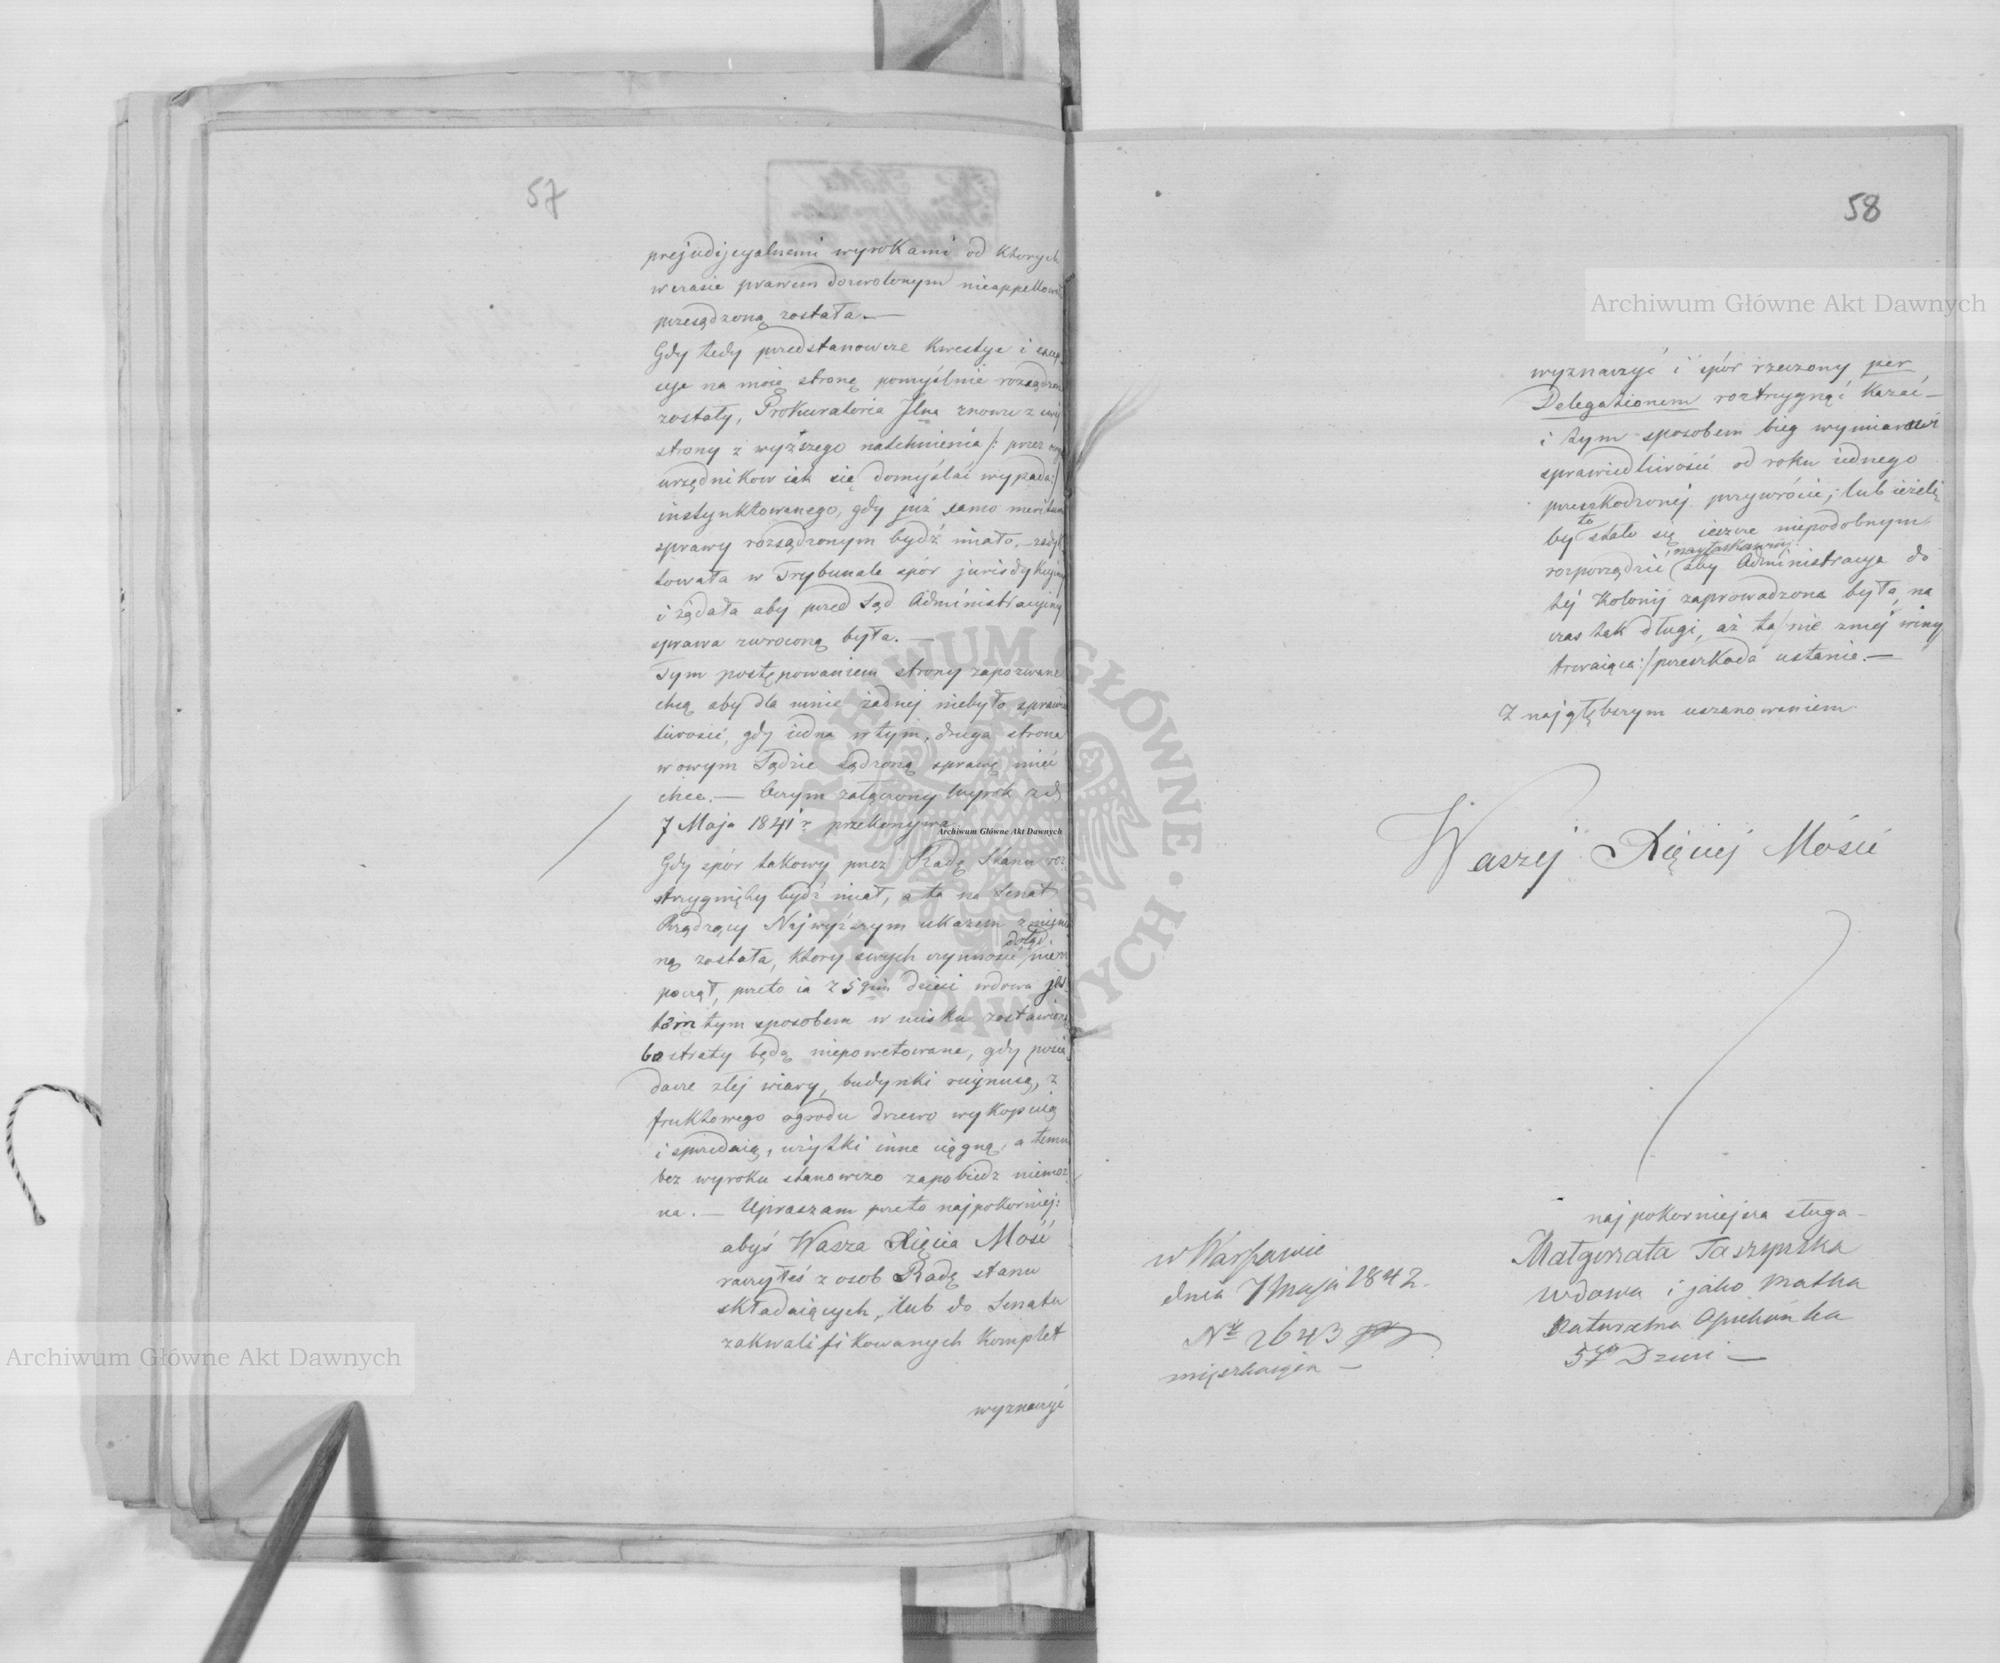 57
prejudycyalnemi wyrokami od ktorych
w czasie prawem dozwolonym nieappellowa
przesądzoną została.—
Gdy tedy przedstanowcze kwestye i excep
cye na moię stronę pomyślnie rozsądzone
zostały, Prokuratoria Jlna znowu z swej
strony z wyższego natchnienia /: przez
urzędnikow iak się domyślać wypada:/
instynktowanego, gdy już samo meritum
sprawy rozsądzonym bydź miało,
towała w Trybunale spór jurisdykcyiny
i żądała aby przed Sąd Administracyiny
sprawa zwroconą była.—
Tym postępowaniem strony zapozwane
chcą aby dla mnie żadnej niebyło sprawied
liwości, gdy iedna w tym, druga strona
w owym Sądzie sądzoną sprawę mieć
chce.— Oczym załączony Wyrok z d
7 Maja 1841 r przekonywa
Gdy spór takowy przez Radę Stanu roz
strzygnięty bydź miał, a ta na Senat
Rządzący Najwyższym ukazem zmienio
ną została, ktory swych czynności dotąd nieroz
począł, przeto ia z 5giem dzieci wdowa jes
tem tym sposobem w ucisku zostawiona
bo straty będą niepowetowane, gdy posia
dacze złej wiary, budynki ruynuią, z
fruktowego ogrodu drzewo wykopuią
i sprzedaią, użytki inne ciągną, a temu
bez wyroku stanowczo zapobiedz niemoż
na.— Upraszam przeto najpokorniej:
abyś Wasza Xięcia Mość
raczyłeś z osob Radę stanu
składaiących, lub do Senatu
zakwalifikowanych Komplet
wyznaczyć
58
wyznaczyć i spór rzeczony per
Delegationem roztrzygnąć kazać—
i tym sposobem bieg wymiarowi
sprawiedliwości od roku iednego
przeszkodzonej przywrócić; lub ieżeli
by to stało się ieszcze niepodobnym
rozporządzić naylaskawiej aby Administracya do
tej Kolonij zaprowadzona była, na
czas tak długi, aż ta /:nie z mej winy
trwaiąca:/ przeszkoda ustanie.—
Z najgłębszym uszanowaniem
Waszej Xięciej Mości
najpokorniejsza sługa—
Małgorzata Taszyńska
wdowa i jako matka
Naturalna Opiekunka
5ga Dzieci—
w Warszawie
dnia 7 Maja 1842.
Nr 2643
mieszkaiąca—
Archiwum Główne Akt Dawnych
Archiwum Główne Akt Dawnych
Archiwum Główne Akt Dawnych
ARCHIWUM GŁÓWNE AKT DAWNYCH